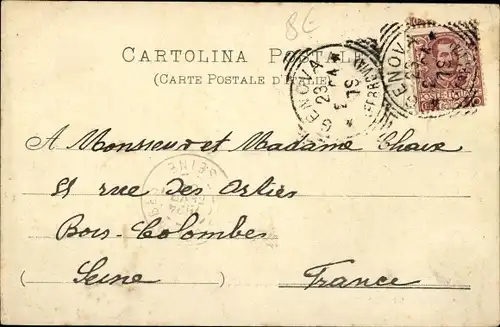 8€
CARTOLINA POSTALE
(CARTE POSTALE D'ITALIE)
GENOVA
FERROVIA
GENOVA
A Monsieur et Madame Chaix
51 rue des Ortiers
Bois-Colombes
(Seine) France
SEINE